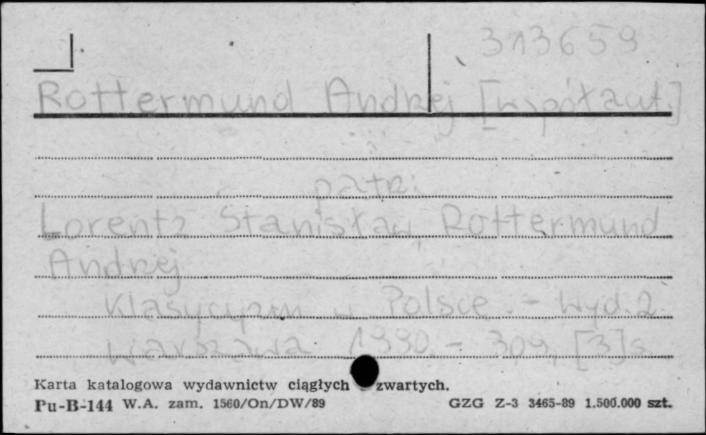 313659
Rottermund Andrzej [współaut.]
patrz:
Lorentz Stanisław, Rottermund
Andrzej
Klasycyzm w Polsce. - Wyd. 2.
Warszawa 1990. - 309, [3] s.
Karta katalogowa wydawnictw ciągłych zwartych.
Pu-B-144 W.A. zam. 1560/On/DW/89 GZG Z-3 3465-89 1.500.000 szt.